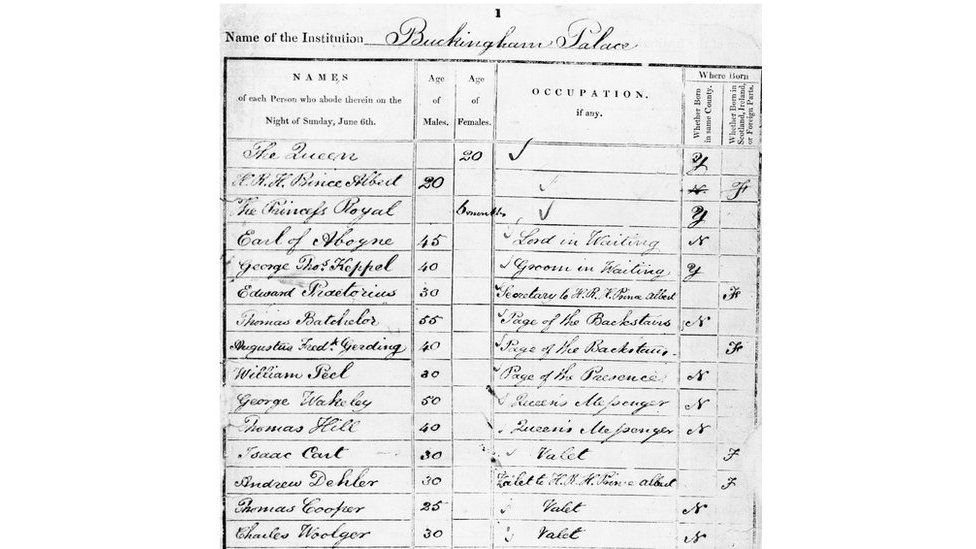 1
Name of the Institution Buckingham Palace
NAMES of each Person who abode therein on the Night of Sunday, June 6th. Age of Males. Age of Females. OCCUPATION. if any. Where Born Whether Born in same County. Whether Born in Scotland, Ireland, or Foreign Parts.
The Queen 20 ✓ Y
H.R.H. Prince Albert 20 ✓ N F
The Princess Royal 6 months ✓ Y
Earl of Aboyne 45 Lord in Waiting N
George Thos. Keppel 40 Groom in Waiting Y
Edward Praetorius 30 Secretary to H.R.H. Prince Albert F
Thomas Batchelor 55 Page of the Backstairs N
Augustus Fredk. Gerding 40 Page of the Backstairs F
William Peel 30 Page of the Presence N
George Wakeley 50 Queen's Messenger N
Thomas Hill 40 Queen's Messenger N
Isaac Cart 30 Valet F
Andrew Dehler 30 Valet to H.R.H. Prince Albert F
Thomas Cooper 25 Valet N
Charles Woolger 30 Valet N